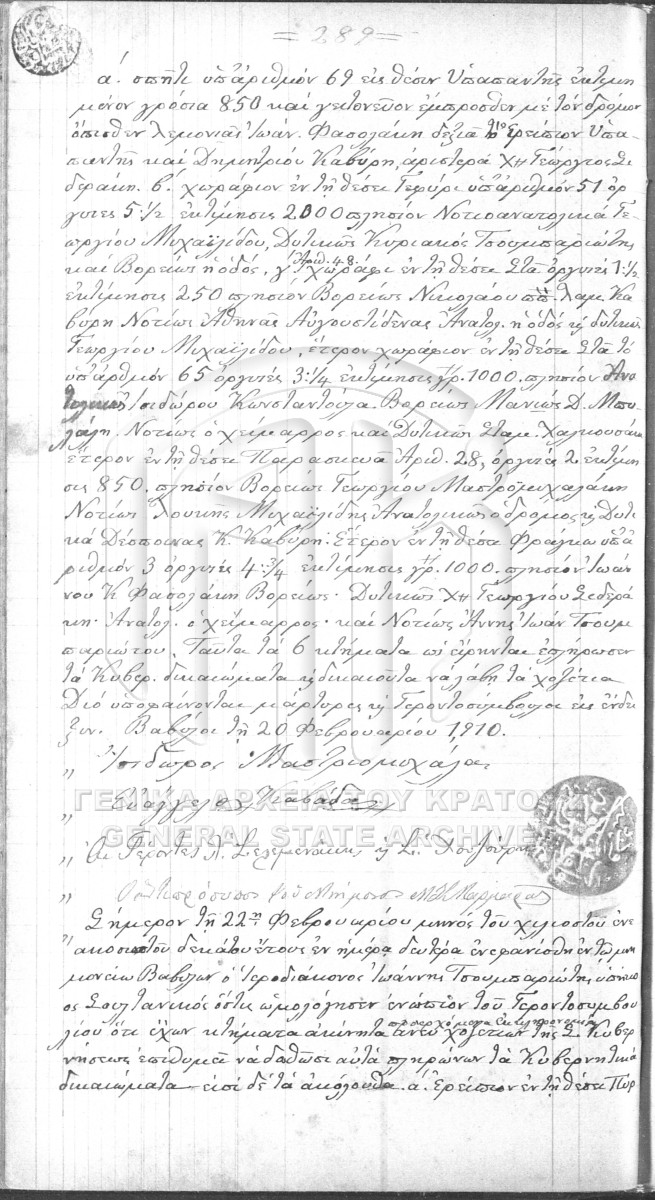 = 289 =
α΄. σπῆτι ὑπ' ἀριθμόν 69 εἰς θέσιν Ὑπαπαντῆς ἐκτιμη
μένον γρόσια 850 καί γειτονεῦον ἔμπροσθεν μέ τόν δρόμον
ὄπισθεν Λεμονιᾶς Ἰωάν. Φασολάκη δεξιᾶ τό Ἐρείπιον Ὑπα-
παντῆς καί Δημητρίου Καβύρη, ἀριστερά Χῆ Γεώργιος Σι
δεράκη. β΄. χωράφιον ἐν τῇ θέσει Γεφύρι ὑπ' ἀριθμόν 51 ὀρ
γυιές 5 1/2 ἐκτίμησις 2000 πλησίον Νοτιοανατολικά Γε
ωργίου Μιχαϊλίδου, Δυτικῶς Κυριακός Τσουμπαριώτης
καί Βορείως ἡ ὁδός, γ΄ Ἀριθ. 48 χωράφι ἐν τῇ θέσει Στᾶ ὀργυιές 1:1/2
ἐκτίμησις 250 πλησίον Βορείως Νικολάου Σταμ. Κα
βύρη Νοτίως Ἀθηνᾶς Αὐγουστίδενας Ἀνατολ. ἡ ὁδός κ δυτικῶς
Γεωργίου Μιχαϊλίδου, ἕτερον χωράφιον ἐν τῇ θέσει Στᾶ τό
ὑπ' ἀριθμόν 65 ὀργυιές 3:1/4 ἐκτίμησις γρ. 1000. πλησίον Ἀνα
τολικῶς Ἰσιδώρου Κωνσταντούλα. Βορείως Μανιῶς Δ. Μπου
λάλη. Νοτίως ὁ χείμαρρος καί Δυτικῶς Σταμ. Χαλκούσακη
ἕτερον ἐν τῇ θέσει Παρασκευᾶ Ἀριθ. 28, ὀργυιές 2 ἐκτίμη
σις 850. πλησίον Βορείως Γεωργίου Μαστρομιχαλάκη
Νοτίως Λουκῆς Μιχαϊλίδης Ἀνατολικῶς ὁ δρόμος κ Δυτι
κά Δέσποινας Κ. Καβύρη. Ἕτερον ἐν τῇ θέσει Φραγκιά ὑπ' ἀ
ριθμόν 3 ὀργυιές 4:3/4 ἐκτίμησις γρ. 1000. πλησίον Ἰωάν
νου Κ Φασολάκη Βορείως. Δυτικῶς Χῆ Γεωργίου Σιδερά
κη. Ἀνατολ. ὁ χείμαρρος. καί Νοτίως Ἄννης Ἰωάν Τσουμ
παριώτου. Ταῦτα τά 6 κτήματα ὡς εἴρηνται ἐπλήρωσεν
τά Κυβερ. δικαιώματα κ δικαιοῦται νά λάβῃ τά χοζέτια
Διό ὑποφαίνονται μάρτυρες κ Γεροντοσύμβουλοι εἰς ἔνδει
ξιν. Βαβύλοι τῇ 20 Φεβρουαρίου 1910.
„ Ἰσίδωρος Μαστρομιχάλης
„ Εὐάγγελος Καβάδας
„ Οἱ Γέροντες Λ. Σελεμενάκης κ Σ. Χουζούρης
„ Ὁ ἀντιπρόσωπος
ΓΕΝΙΚΑ ΑΡΧΕΙΑ ΤΟΥ ΚΡΑΤΟΥΣ
GENERAL STATE ARCHIVES
Σήμερον τῇ 22ᾳ Φεβρουαρίου μηνός τοῦ χιλιοστοῦ ἐνε
„ ακοσιοστοῦ δεκάτου ἔτους ἐν ἡμέρᾳ δευτέρᾳ ἐνεφανίσθη ἐν τῷ μνη
μονείῳ Βαβύλων ὁ Ἱεροδιάκονος Ἰωάννης Τσουμπαριώτης ὑπήκο
ος Σουλτανικός ὅστις ὡμολόγησεν ἐνώπιον τοῦ Γεροντοσυμβου
λίου ὅτι ἔχων κτήματα ἀκίνητα προσερχόμενα ἐκ κληρονομίας ἄνευ χοζετίων τῆς Σ. Κυβερ
νήσεως ἐπιθυμεῖ νά δηλώσῃ αὐτά πληρώνων τά Κυβερνητικά
δικαιώματα εἰσί δέ τά ἀκόλουθα. α΄. Ἐρείπιον ἐν τῇ θέσει Πυρ